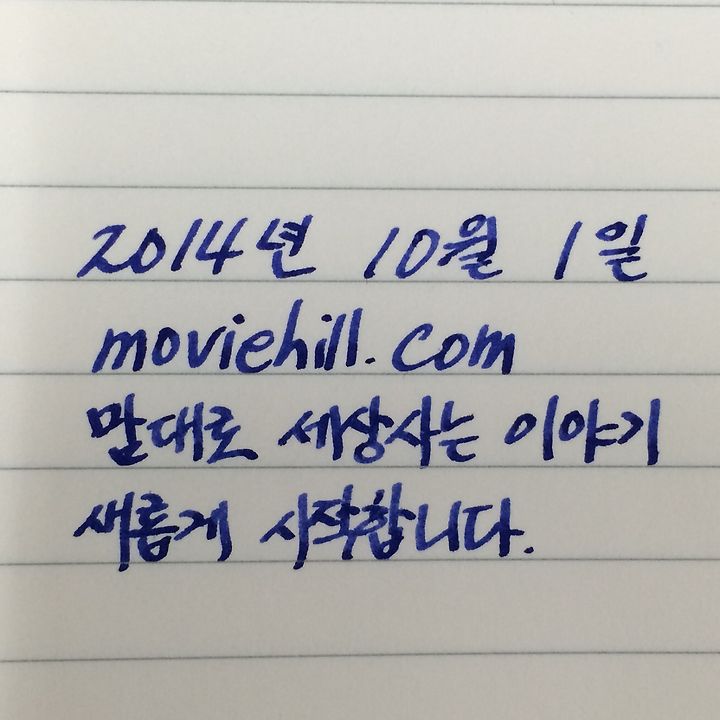 2014년 10월 1일
moviehill.com
말대로 세상사는 이야기
새롭게 시작합니다.